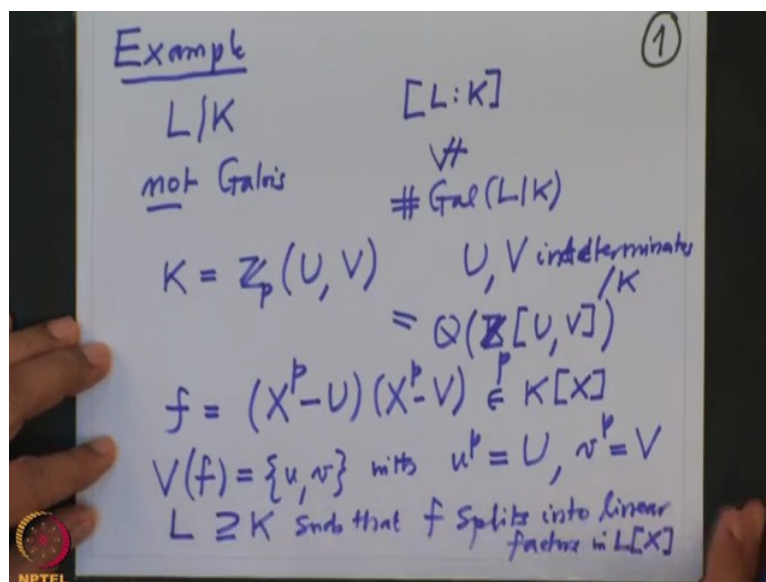 Example
①
L|K
[L:K]
not Galois
≠
# Gal(L|K)
K = ℤp(U, V)
U, V indeterminates
/K
= Q(ℤp[U,V])
f = (X^p - U)(X^p - V) ∈ K[X]
V(f) = {u, v} with u^p = U, v^p = V
L ⊇ K such that f splits into linear
factors in L[X]
NPTEL